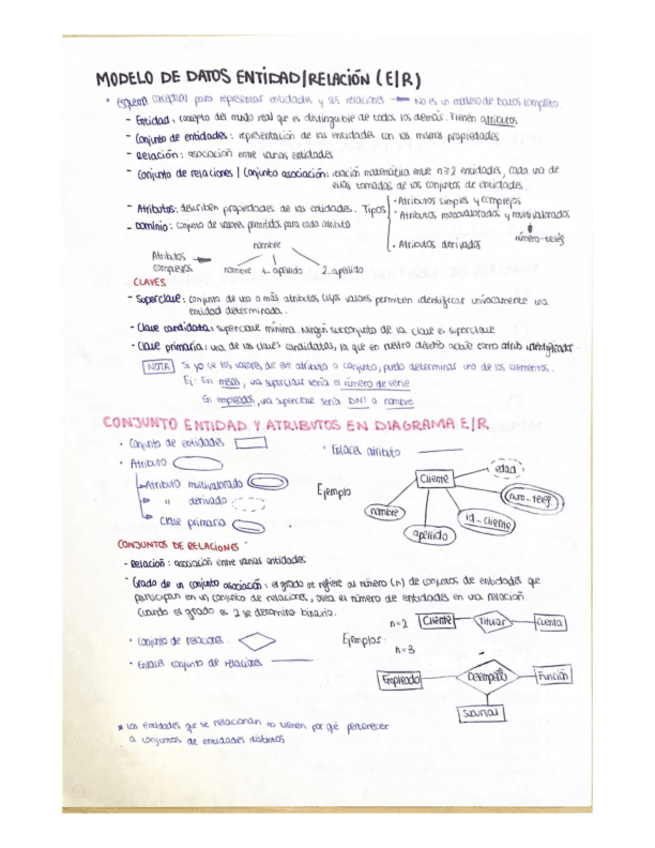 MODELO DE DATOS ENTIDAD/RELACIÓN (E/R)
· Esquema conceptual para representar entidades y sus relaciones → No es un modelo de datos completo
- Entidad: concepto del mundo real que es distinguible de todos los demás. Tienen atributos
- Conjunto de entidades: representación de las entidades con las mismas propiedades
- Relación: asociación entre varias entidades
- Conjunto de relaciones | Conjunto asociación: relación matemática entre n≥2 entidades, cada una de
ellas tomadas de los conjuntos de entidades.
- Atributos: describen propiedades de las entidades. Tipos
· Atributos simples y complejos
· Atributos monovalorados y multivalorados
número-telég
· Atributos derivados
- Dominio: conjunto de valores permitidos para cada atributo
nombre
Atributos compuestos →
nombre 1-apellido 2-apellido
CLAVES
- Superclave: conjunto de uno o más atributos cuyos valores permiten identificar unívocamente una
entidad determinada.
- Clave candidata: superclave mínima. Ningún subconjunto de la clave es superclave
- Clave primaria: una de las claves candidatas, la que en nuestro diseño actúe como atrib identificador
NOTA Si yo sé los valores de ese atributo o conjunto, puedo determinar uno de los elementos.
Ej: En mesas, una superclave sería el número de serie
En empleados, una superclave sería DNI o nombre
CONJUNTO ENTIDAD Y ATRIBUTOS EN DIAGRAMA E/R
· Conjunto de entidades
· Enlaces atributo
· Atributo
Atributo multivalorado
" derivado
Clave primaria
Ejemplo
Cliente
edad
num-telég
id-cliente
apellido
nombre
CONJUNTOS DE RELACIONES
- Relación: asociación entre varias entidades
- Grado de un conjunto asociación: el grado se refiere al número (n) de conjuntos de entidades que
participan en un conjunto de relaciones, o sea el número de entidades en una relación.
Cuando el grado es 2 se denomina binario.
· Conjunto de relaciones
· Enlaces conjunto de relaciones
Ejemplos:
n=2 Cliente Titular Cuenta
n=3
Empleado Desempeña Función
Sucursal
* Las entidades que se relacionan no tienen por qué pertenecer
a conjuntos de entidades distintos